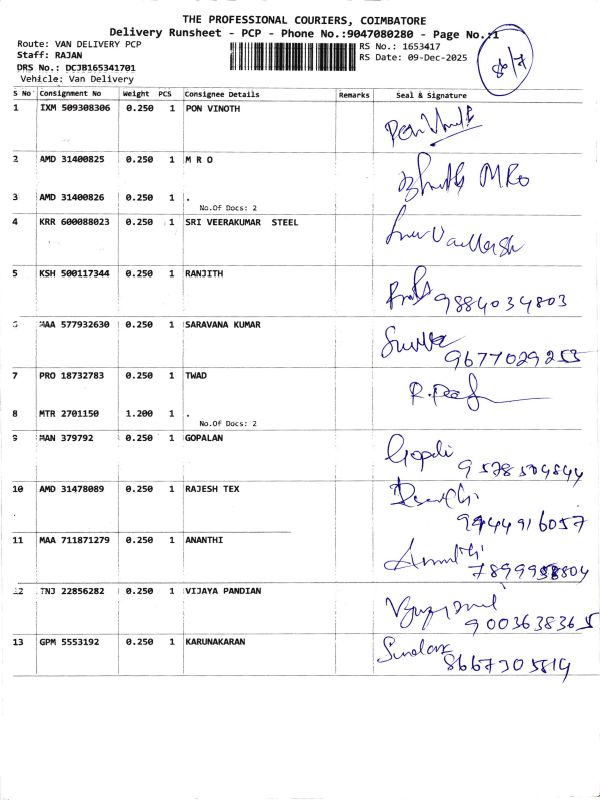 THE PROFESSIONAL COURIERS, COIMBATORE
Delivery Runsheet - PCP - Phone No.:9047080280 - Page No.:1
Route: VAN DELIVERY PCP
Staff: RAJAN
DRS No.: DCJB165341701
Vehicle: Van Delivery
RS No.: 1653417
RS Date: 09-Dec-2025
S No Consignment No Weight PCS Consignee Details Remarks Seal & Signature
1 IXM 509308306 0.250 1 PON VINOTH
2 AMD 31400825 0.250 1 M R O MRO
3 AMD 31400826 0.250 1 .
No.Of Docs: 2
4 KRR 600088023 0.250 1 SRI VEERAKUMAR STEEL
5 KSH 500117344 0.250 1 RANJITH 9884034803
MAA 577932630 0.250 1 SARAVANA KUMAR 9677029253
7 PRO 18732783 0.250 1 TWAD
8 MTR 2701150 1.200 1 .
No.Of Docs: 2
9 MAN 379792 0.250 1 GOPALAN Gopali
10 AMD 31478089 0.250 1 RAJESH TEX 9444916057
11 MAA 711871279 0.250 1 ANANTHI
12 TNJ 22856282 0.250 1 VIJAYA PANDIAN 9003638365
13 GPM 5553192 0.250 1 KARUNAKARAN 8667305814